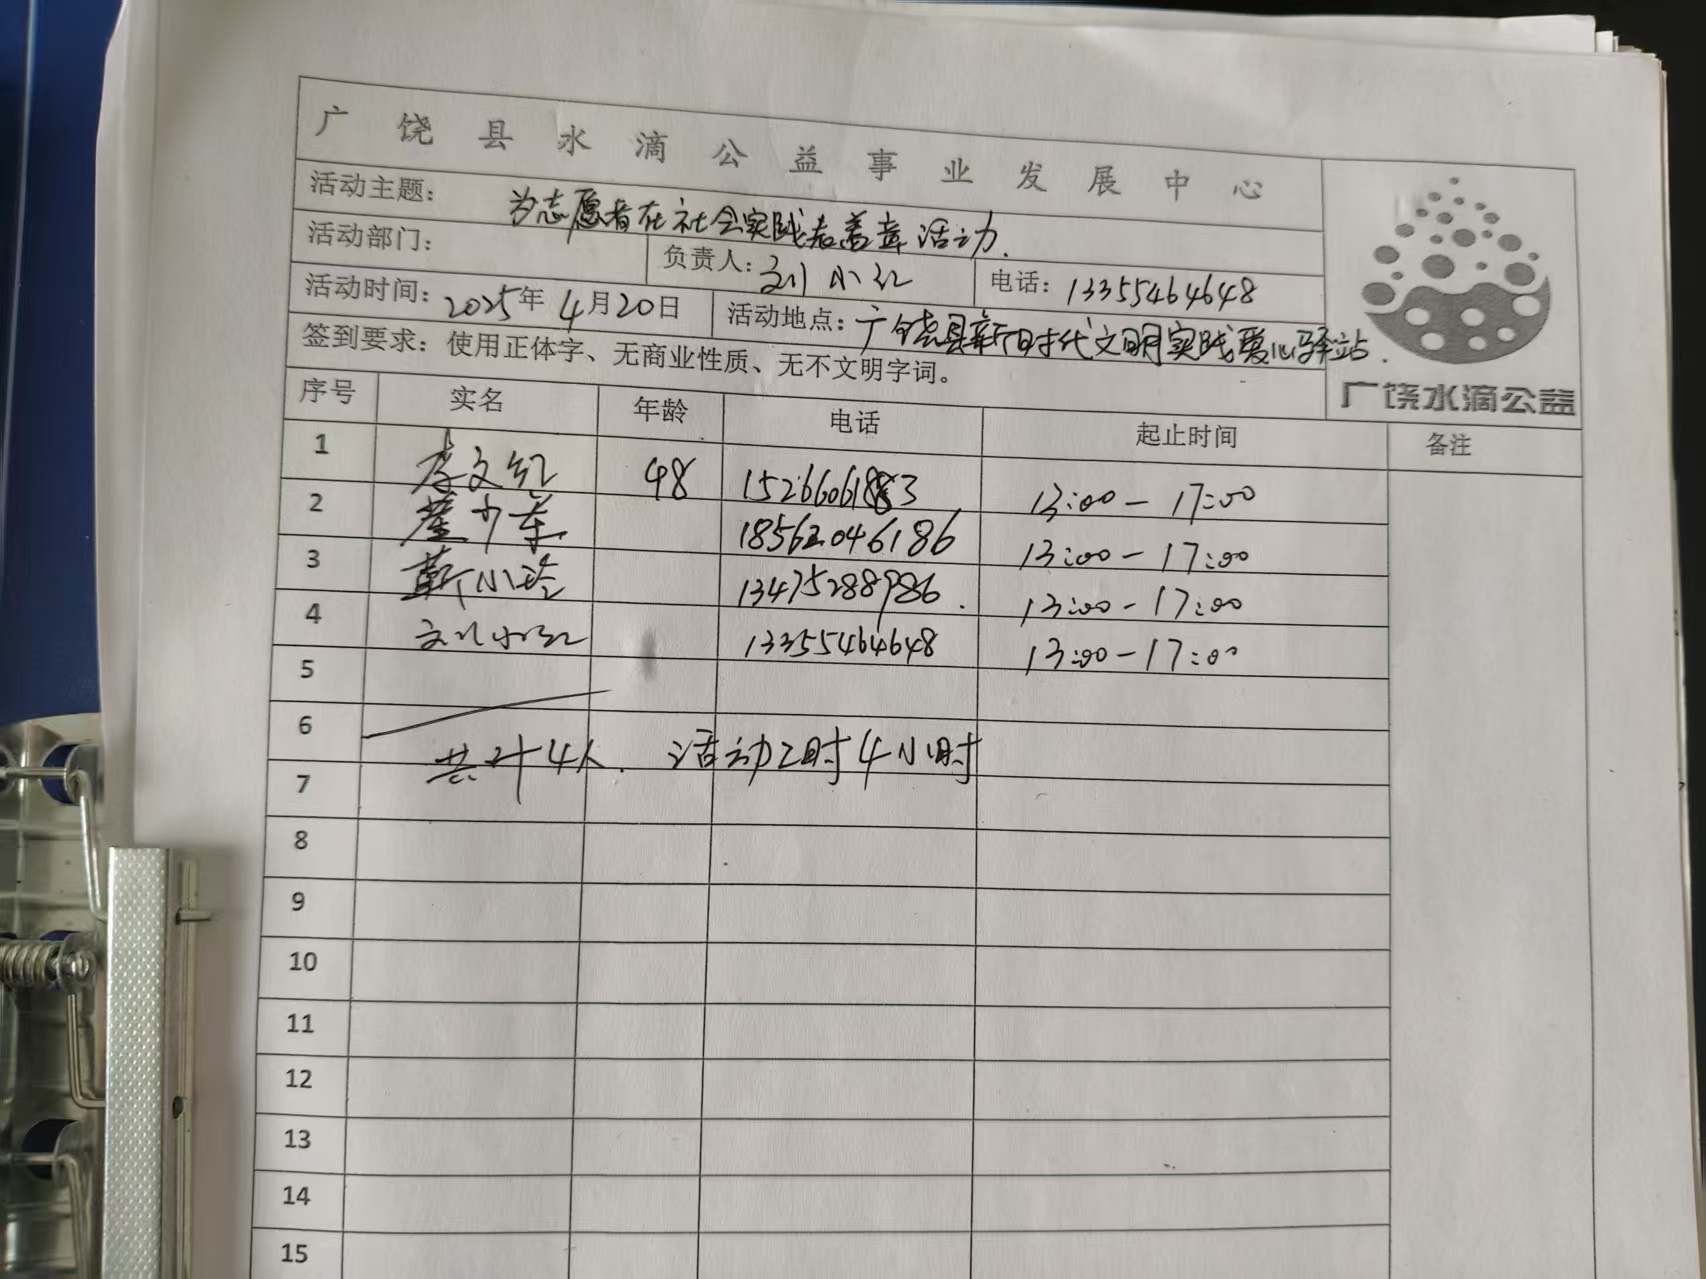 广饶县水滴公益事业发展中心
活动主题： 为志愿者在社会实践表盖章活动.
活动部门： 负责人：刘小红 电话：13355464648
活动时间：2025年4月20日 活动地点：广饶县新时代文明实践爱心驿站.
签到要求：使用正体字、无商业性质、无不文明字词。
广饶水滴公益
序号 实名 年龄 电话 起止时间 备注
1 李文红 48 15266061883 13:00-17:00
2 崔少东 18562046186 13:00-17:00
3 靳小玲 13475288986. 13:00-17:00
4 刘小红 13355464648 13:00-17:00
5
6 共计4人. 活动用时4小时
7
8
9
10
11
12
13
14
15